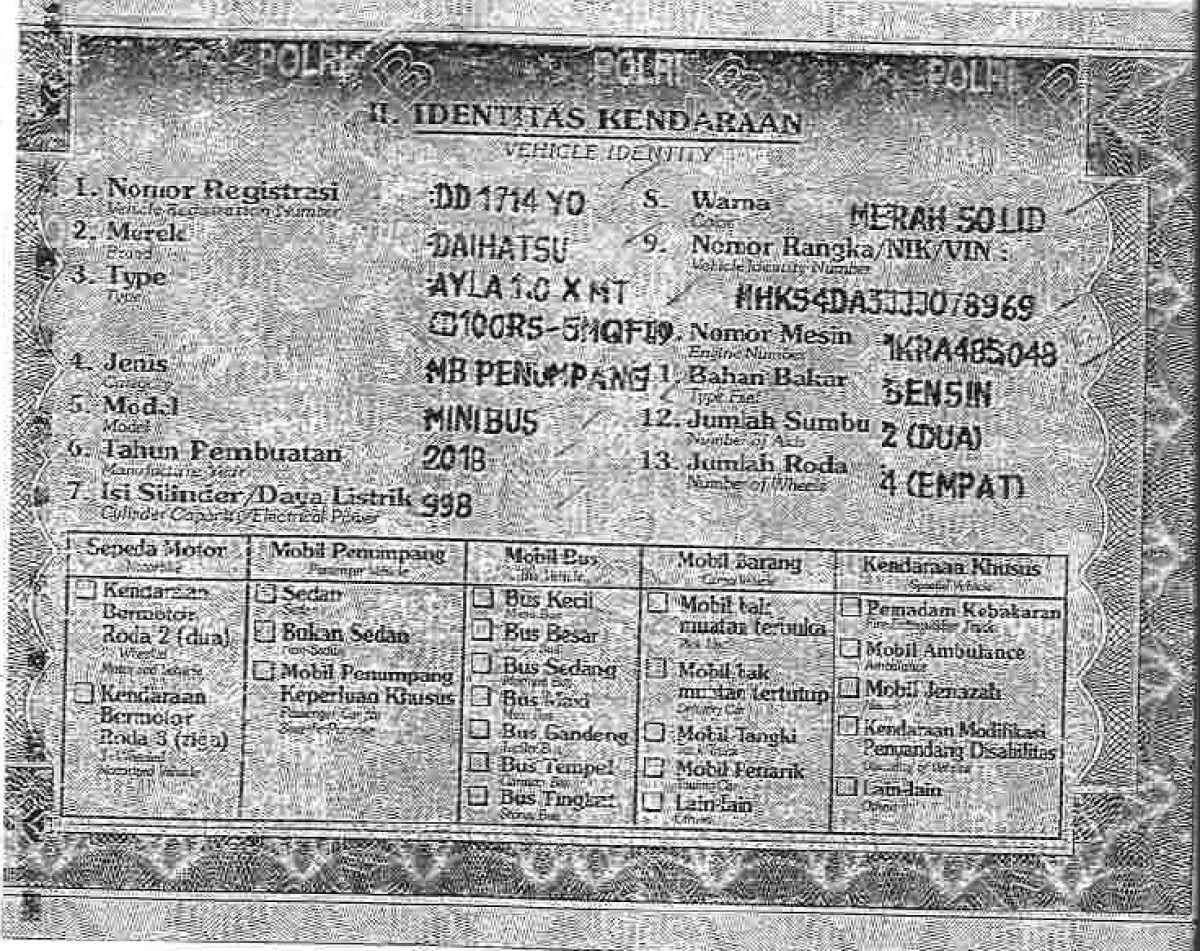 POLRI POLRI POLRI
II. IDENTITAS KENDARAAN
VEHICLE IDENTITY
1. Nomor Registrasi :DD 1714 YO
Vehicle Registration Number
2. Merek :DAIHATSU
Brand
3. Type :AYLA 1.0 X MT
Type
4. Jenis :MB PENUMPANG
Category
5. Model :MINIBUS
Model
6. Tahun Pembuatan :2018
Manufacture Year
7. Isi Silinder/Daya Listrik :998
Cylinder Capacity/Electrical Power
8. Warna :MERAH SOLID
Color
9. Nomor Rangka/NIK/VIN :
Vehicle Identity Number
10. Nomor Mesin :1KRA485048
Engine Number
11. Bahan Bakar :BENSIN
Type Fuel
12. Jumlah Sumbu :2 (DUA)
Number of Axis
13. Jumlah Roda :4 (EMPAT)
Number of Wheels
Sepeda Motor
Kendaraan
Bermotor
Roda 2 (dua)
Kendaraan
Bermotor
Roda 3 (tiga)
Mobil Penumpang
Passenger Vehicle
Sedan
Bukan Sedan
Mobil Penumpang
Keperluan Khusus
Mobil Bus
Bus Vehicle
Bus Kecil
Bus Besar
Bus Sedang
Bus Maxi
Bus Gandeng
Bus Tempel
Bus Tingkat
Mobil Barang
Mobil bak
muatan terbuka
Mobil bak
muatan tertutup
Mobil Tangki
Mobil Penarik
Lain-lain
Kendaraan Khusus
Special Vehicle
Pemadam Kebakaran
Mobil Ambulance
Ambulance
Mobil Jenazah
Kendaraan Modifikasi
Penyandang Disabilitas
Lain-lain